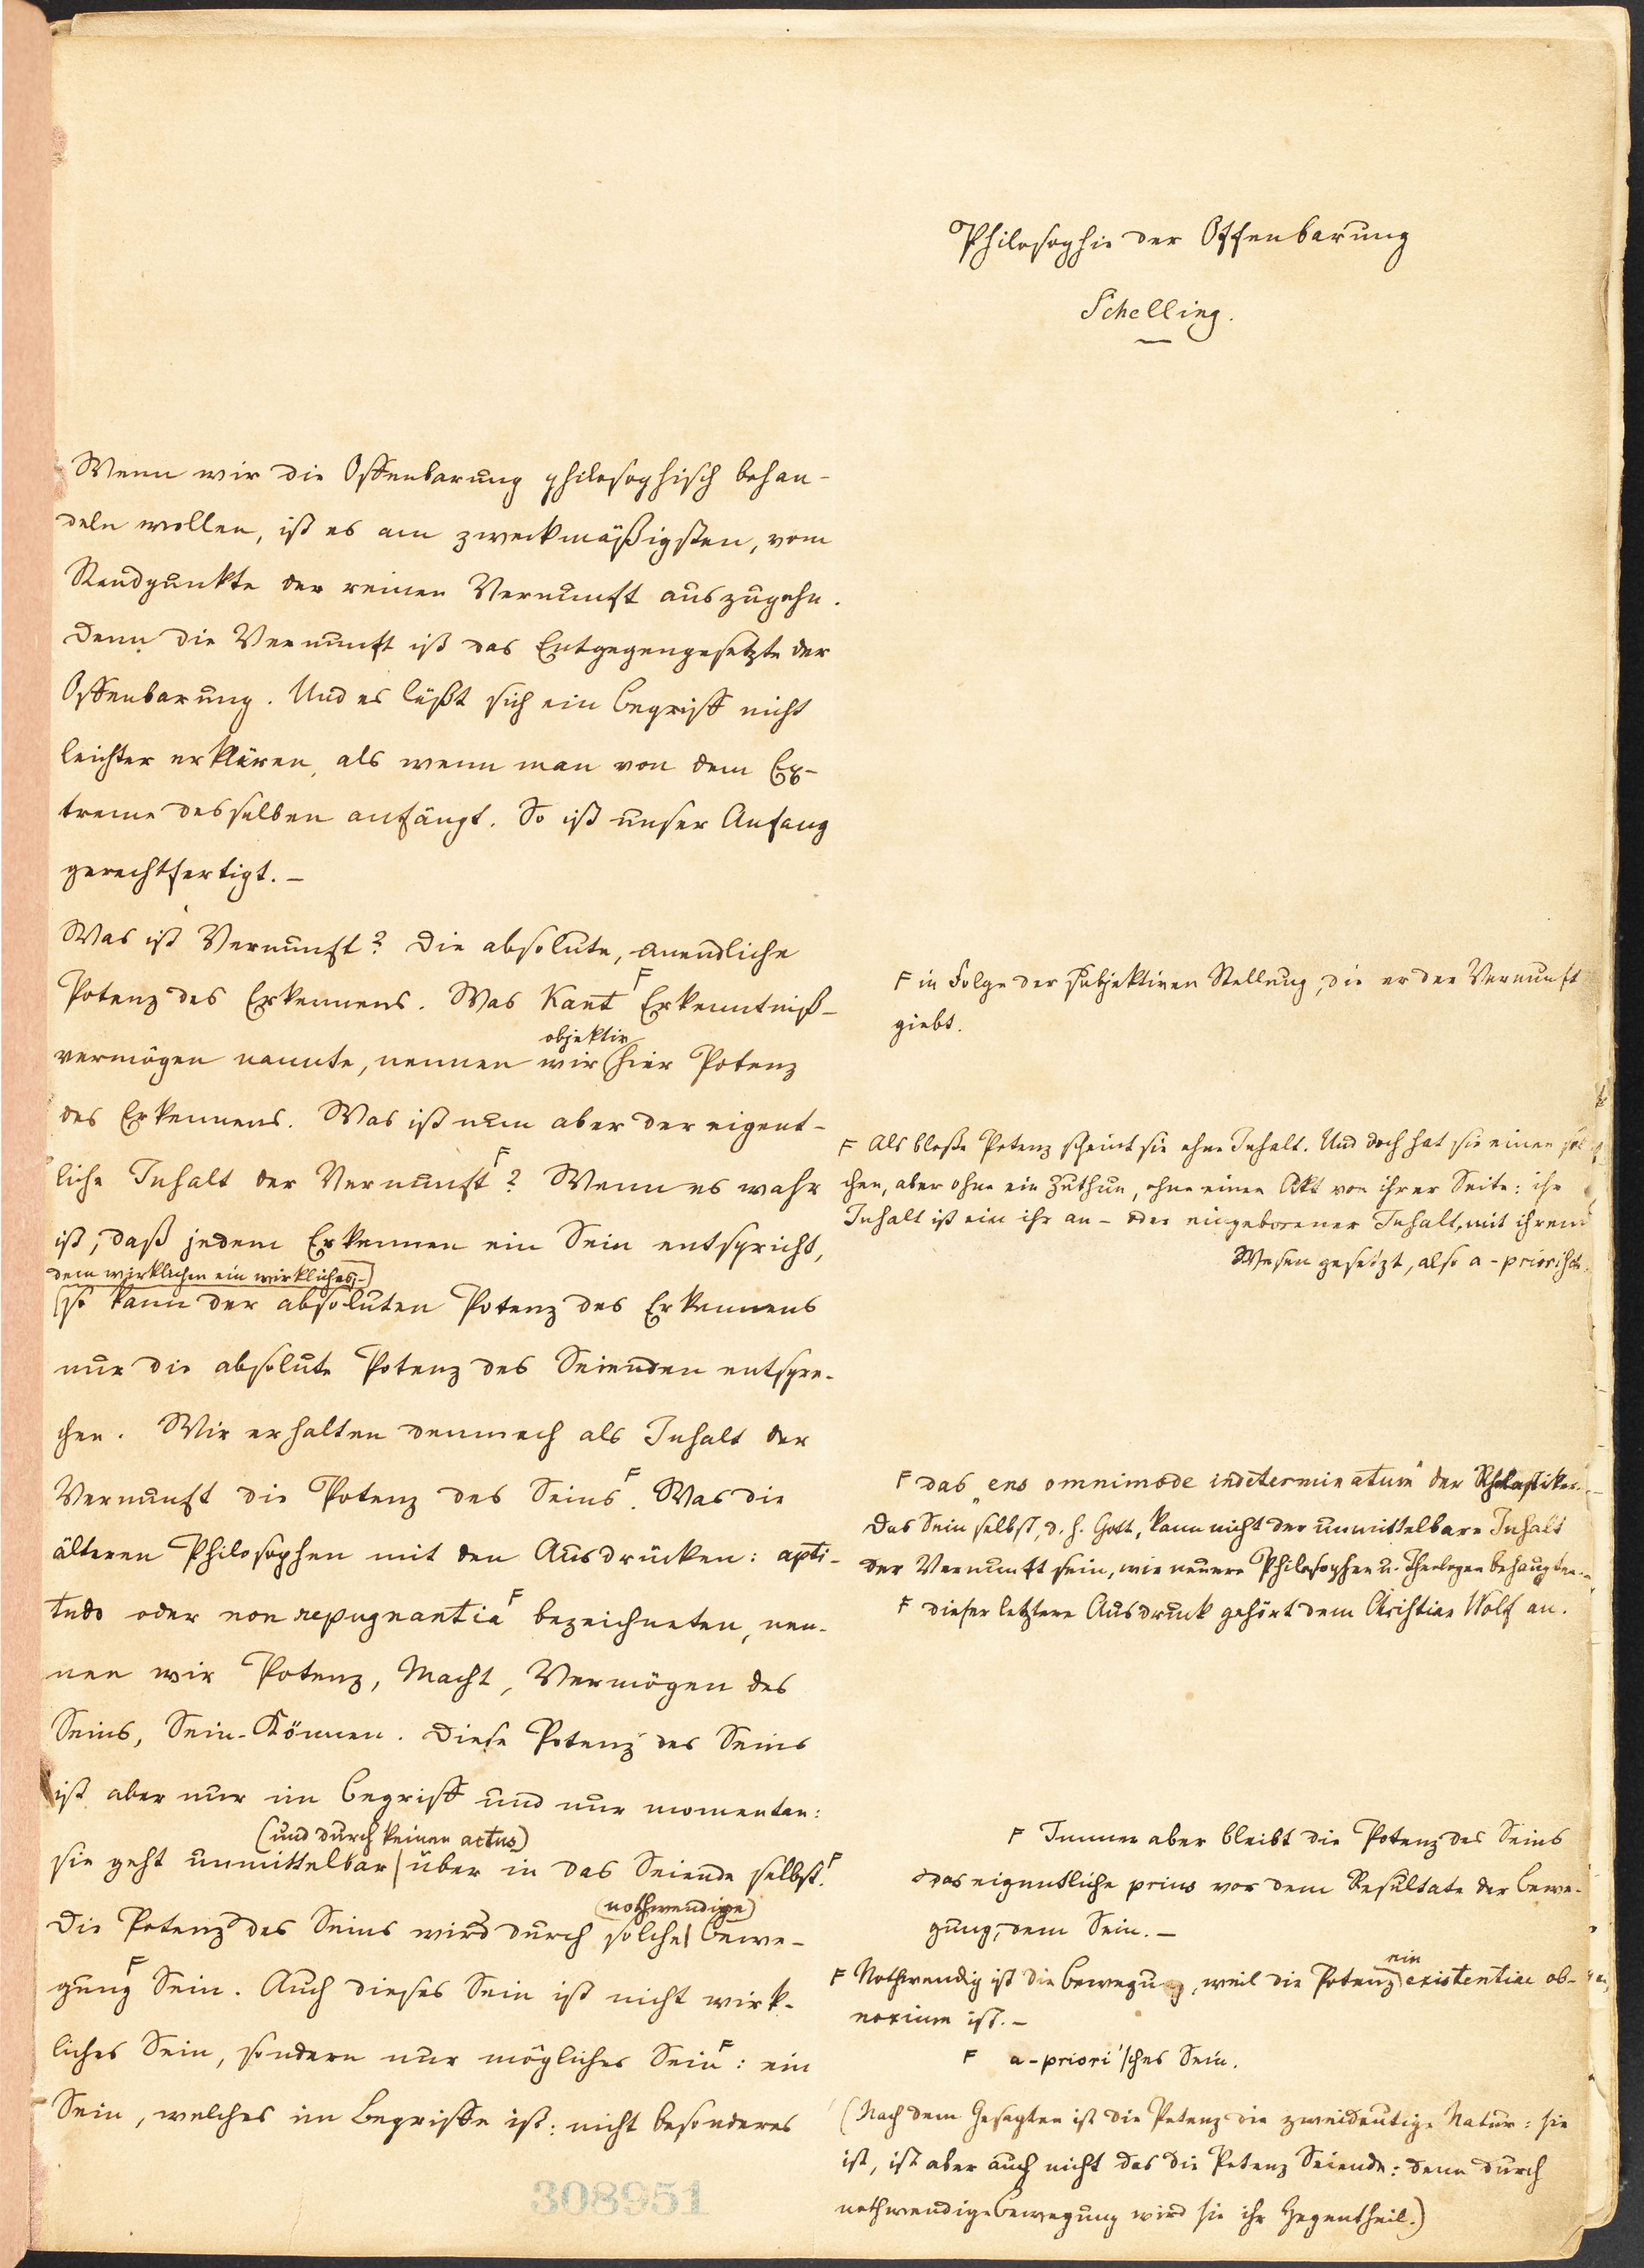 Philosophie der Offenbarung
Schelling.
Wenn wir die Offenbarung philosophisch behan-
deln wollen, ist es am zweckmäßigsten, vom
Standpunkte der reinen Vernunft auszugehn.
Denn die Vernunft ist das Entgegengesetzte der
Offenbarung. Und es läßt sich ein Begriff nicht
leichter erklären, als wenn man von dem Ex-
treme desselben anfängt. So ist unser Anfang
gerechtfertigt. –
Was ist Vernunft? Die absolute, unendliche
Potenz des Erkennens. Was Kant F Erkenntniß-
objektiv
vermögen nannte, nennen wir hier Potenz
des Erkennens. Was ist nun aber der eigent-
liche Inhalt der Vernunft F? Wenn es wahr
ist, daß jedem Erkennen ein Sein entspricht,
dem wirklichen ein wirkliches, –
so kann der absoluten Potenz des Erkennens
nur die absolute Potenz des Seienden entspre-
chen. Wir erhalten demnach als Inhalt der
Vernunft die Potenz des Seins F. Was die
älteren Philosophen mit den Ausdrücken: apti-
tudo oder non repugnantia F bezeichneten, nen-
nen wir Potenz, Macht, Vermögen des
Seins, Sein-Können. Diese Potenz des Seins
ist aber nur im Begriff und nur momentan:
(und durch keinen actus)
sie geht unmittelbar über in das Seiende selbst. F
(nothwendige)
Die Potenz des Seins wird durch solche Bewe-
gung F Sein. Auch dieses Sein ist nicht wirk-
liches Sein, sondern nur mögliches Sein F: ein
Sein, welches im Begriffe ist: nicht besonderes
F in Folge der subjektiven Stellung, die er der Vernunft
giebt.
F Als bloße Potenz scheint sie ohne Inhalt. Und doch hat sie einen sol
chen, aber ohne ein Zuthun, ohne einen Akt von ihrer Seite: ihr
Inhalt ist ein ihr an- oder eingeborener Inhalt, mit ihrem
Wesen gesetzt, also a-priorisch.
F das „ens omnimode indeterminatum" der Scholastiker.
Das Sein selbst, d. h. Gott, kann nicht der unmittelbare Inhalt
der Vernunft sein, wie neuere Philosophen u. Theologen behaupten.
F dieser letztere Ausdruck gehört dem Christian Wolf an.
F Immer aber bleibt die Potenz des Seins
das eigentliche prius vor dem Resultate der Bewe-
gung, dem Sein. –
ein
F Nothwendig ist die Bewegung, weil die Potenz existentiae ob-
noxium ist. –
F a-priori'sches Sein.
(Nach dem Gesagten ist die Potenz die zweideutige Natur: sie
ist, ist aber auch nicht das die Potenz Seiende: denn durch
nothwendige Bewegung wird sie ihr Gegentheil.)
308951